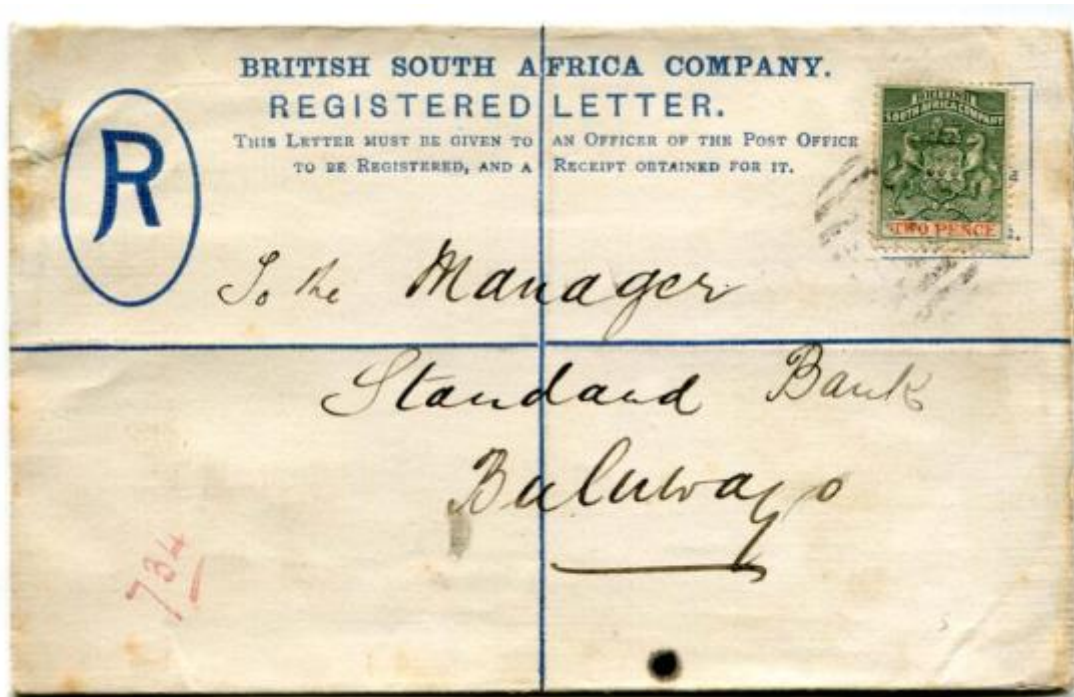 BRITISH SOUTH AFRICA COMPANY.
REGISTERED LETTER.
THIS LETTER MUST BE GIVEN TO AN OFFICER OF THE POST OFFICE
TO BE REGISTERED, AND A RECEIPT OBTAINED FOR IT.
R
BRITISH
SOUTH AFRICA COMPANY
TWO PENCE
To the Manager
Standard Bank
Buluwayo
734